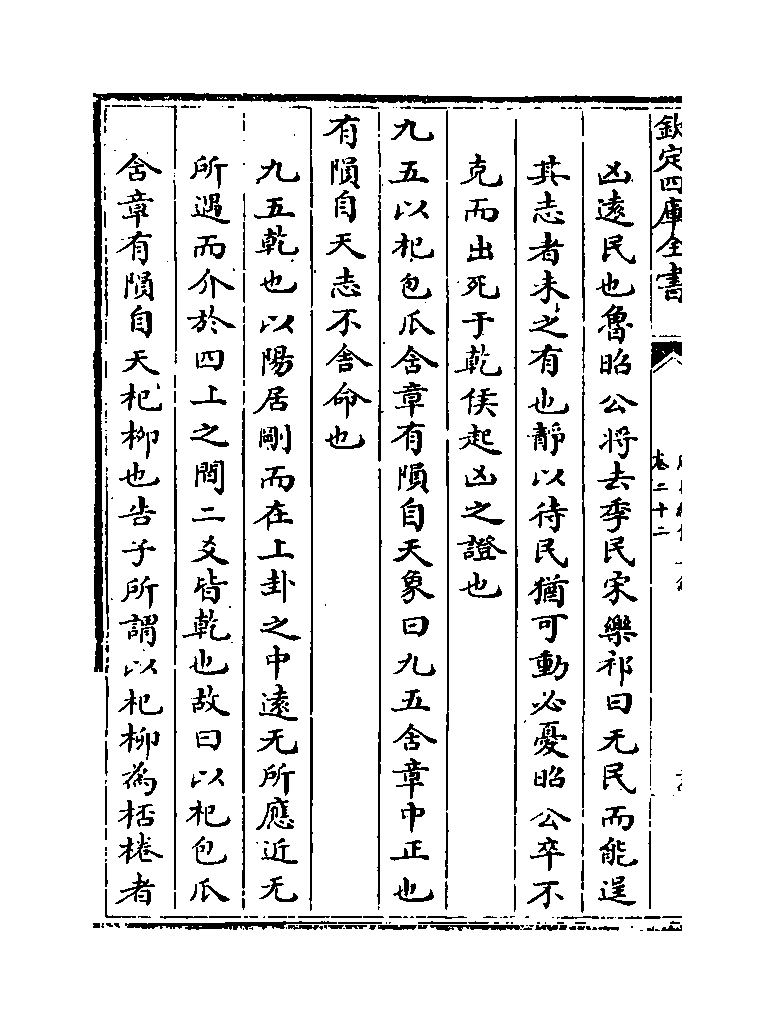 欽定四庫全書
卷二十二
凶逺民也魯昭公將去季民宋樂祁曰无民而能逞
其志者未之有也靜以待民猶可動必憂昭公卒不
克而出死于乾侯起凶之證也
九五以杞包瓜含章有隕自天象曰九五含章中正也
有隕自天志不舍命也
九五乾也以陽居剛而在上卦之中逺无所應近无
所遇而介於四上之間二爻皆乾也故曰以杞包瓜
含章有隕自天杞柳也告子所謂以杞柳為桮棬者